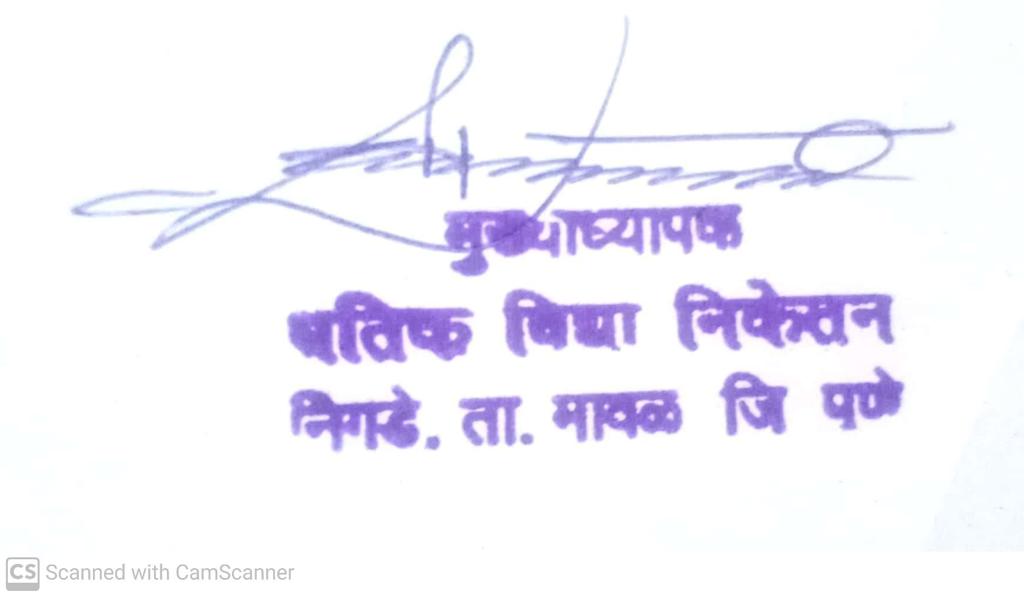 मुख्याध्यापक
विद्या निकेतन
निगडे. ता. मावळ जि पुणे
CS Scanned with CamScanner